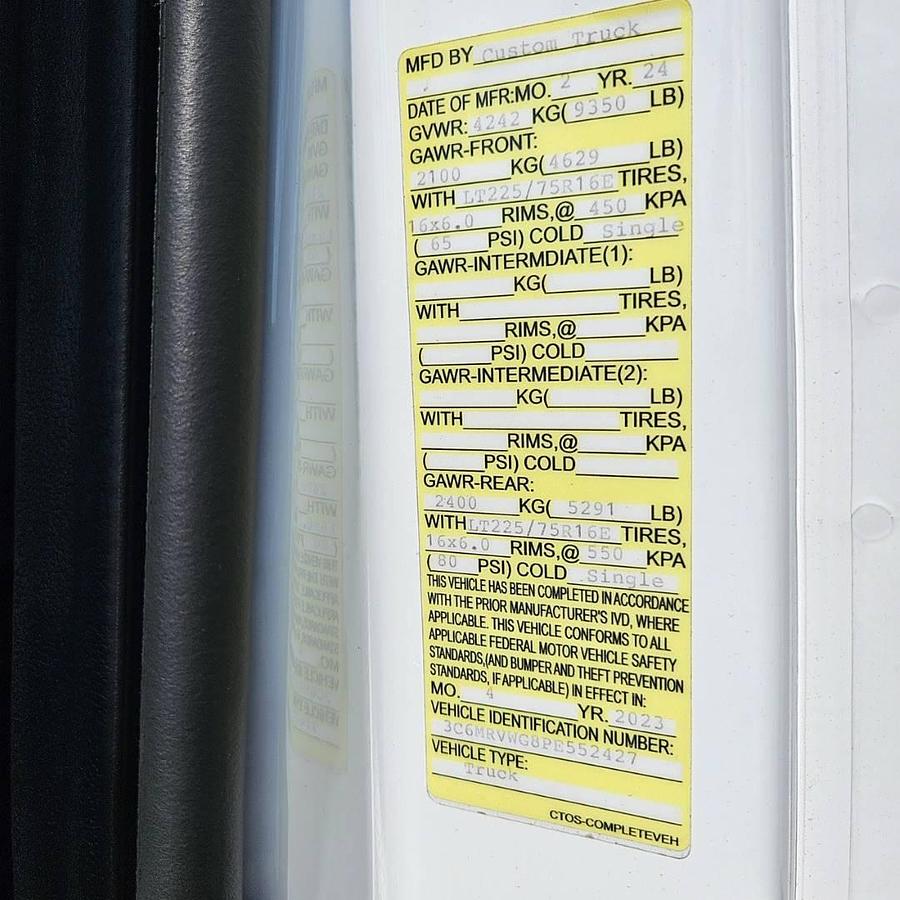 MFD BY Custom Truck
DATE OF MFR:MO. 2 YR. 24
GVWR: 4242 KG( 9350 LB)
GAWR-FRONT:
2100 KG( 4629 LB)
WITH LT225/75R16E TIRES,
16x6.0 RIMS,@ 450 KPA
( 65 PSI) COLD Single
GAWR-INTERMDIATE(1):
KG( LB)
WITH TIRES,
RIMS,@ KPA
( PSI) COLD
GAWR-INTERMEDIATE(2):
KG( LB)
WITH TIRES,
RIMS,@ KPA
( PSI) COLD
GAWR-REAR:
2400 KG( 5291 LB)
WITH LT225/75R16E TIRES,
16x6.0 RIMS,@ 550 KPA
( 80 PSI) COLD Single
THIS VEHICLE HAS BEEN COMPLETED IN ACCORDANCE
WITH THE PRIOR MANUFACTURER'S IVD, WHERE
APPLICABLE. THIS VEHICLE CONFORMS TO ALL
APPLICABLE FEDERAL MOTOR VEHICLE SAFETY
STANDARDS,(AND BUMPER AND THEFT PREVENTION
STANDARDS, IF APPLICABLE) IN EFFECT IN:
MO. 4 YR. 2023
VEHICLE IDENTIFICATION NUMBER:
3C6MRVWG8PE552427
VEHICLE TYPE:
Truck
CTOS-COMPLETEVEH